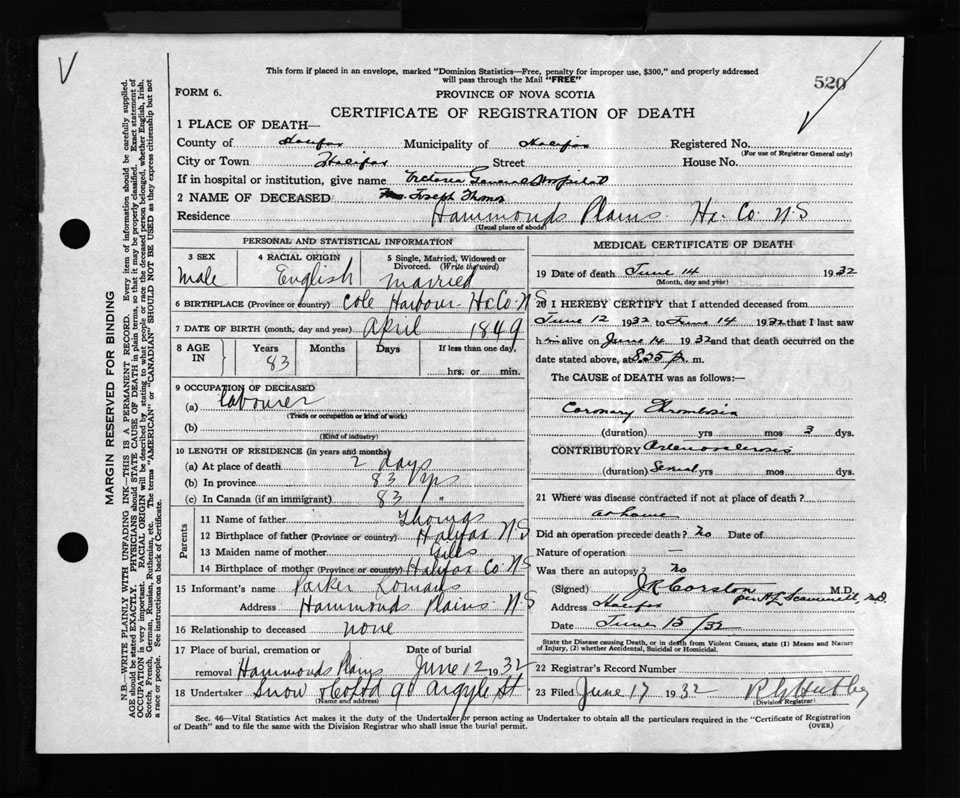 This form if placed in an envelope, marked "Dominion Statistics—Free, penalty for improper use, $300," and properly addressed
will pass through the Mail "FREE"
520
FORM 6.
PROVINCE OF NOVA SCOTIA
CERTIFICATE OF REGISTRATION OF DEATH
1 PLACE OF DEATH—
County of Halifax Municipality of Halifax Registered No.
(For use of Registrar General only)
City or Town Halifax Street House No.
If in hospital or institution, give name Victoria General Hospital
2 NAME OF DECEASED Joseph Thomas
Residence Hammonds Plains Hx. Co. N.S
(Usual place of abode)
PERSONAL AND STATISTICAL INFORMATION
3 SEX 4 RACIAL ORIGIN 5 Single, Married, Widowed or
Divorced. (Write the word)
Male English Married
6 BIRTHPLACE (Province or country) Cole Harbour Hx Co. N S
7 DATE OF BIRTH (month, day and year) April 1849
8 AGE IN Years Months Days If less than one day,
83 hrs. or min.
9 OCCUPATION OF DECEASED
(a) labourer
(Trade or occupation or kind of work)
(b)
(Kind of industry)
10 LENGTH OF RESIDENCE (in years and months)
(a) At place of death 2 days
(b) In province 83 Yrs
(c) In Canada (if an immigrant) 83 "
Parents
11 Name of father Thomas
12 Birthplace of father (Province or country) Halifax N S
13 Maiden name of mother Giles
14 Birthplace of mother (Province or country) Halifax Co. N S
15 Informant's name Parker Romans
Address Hammonds Plains N S
16 Relationship to deceased none
17 Place of burial, cremation or Date of burial
removal Hammonds Plains June 12 1932
18 Undertaker Snow & Co Ltd 90 Argyle St
(Name and address)
MEDICAL CERTIFICATE OF DEATH
19 Date of death June 14 1932
(Month, day and year)
20 I HEREBY CERTIFY that I attended deceased from
June 12 1932 to June 14 1932 that I last saw
him alive on June 14 1932 and that death occurred on the
date stated above, at 8.25 p. m.
The CAUSE of DEATH was as follows:—
Coronary Thrombosis
(duration) yrs mos 3 dys.
CONTRIBUTORY Arteriosclerosis
(duration) yrs mos dys.
21 Where was disease contracted if not at place of death?
at home
Did an operation precede death? No Date of
Nature of operation —
Was there an autopsy? No
(Signed) J R Corston M.D.
Address Halifax
Date June 15/32
State the Disease causing Death, or in death from Violent Causes, state (1) Means and Nature
of Injury, (2) whether Accidental, Suicidal or Homicidal.
22 Registrar's Record Number
23 Filed June 17 1932 R G Hubley
(Division Registrar)
Sec. 46—Vital Statistics Act makes it the duty of the Undertaker or person acting as Undertaker to obtain all the particulars required in the "Certificate of Registration
of Death" and to file the same with the Division Registrar who shall issue the burial permit. (OVER)
MARGIN RESERVED FOR BINDING
N.B.—WRITE PLAINLY WITH UNFADING INK—THIS IS A PERMANENT RECORD. Every item of information should be carefully supplied.
AGE should be stated EXACTLY. PHYSICIANS should STATE CAUSE OF DEATH in plain terms, so that it may be properly classified. Exact statement of
OCCUPATION is very important. RACIAL ORIGIN will be described by stating to what people or race the deceased person belonged, whether English, Irish,
Scotch, French, German, Russian, Ruthenian, etc. The terms "AMERICAN" or "CANADIAN" SHOULD NOT BE USED as they express citizenship but not
a race or people. See instructions on back of Certificate.